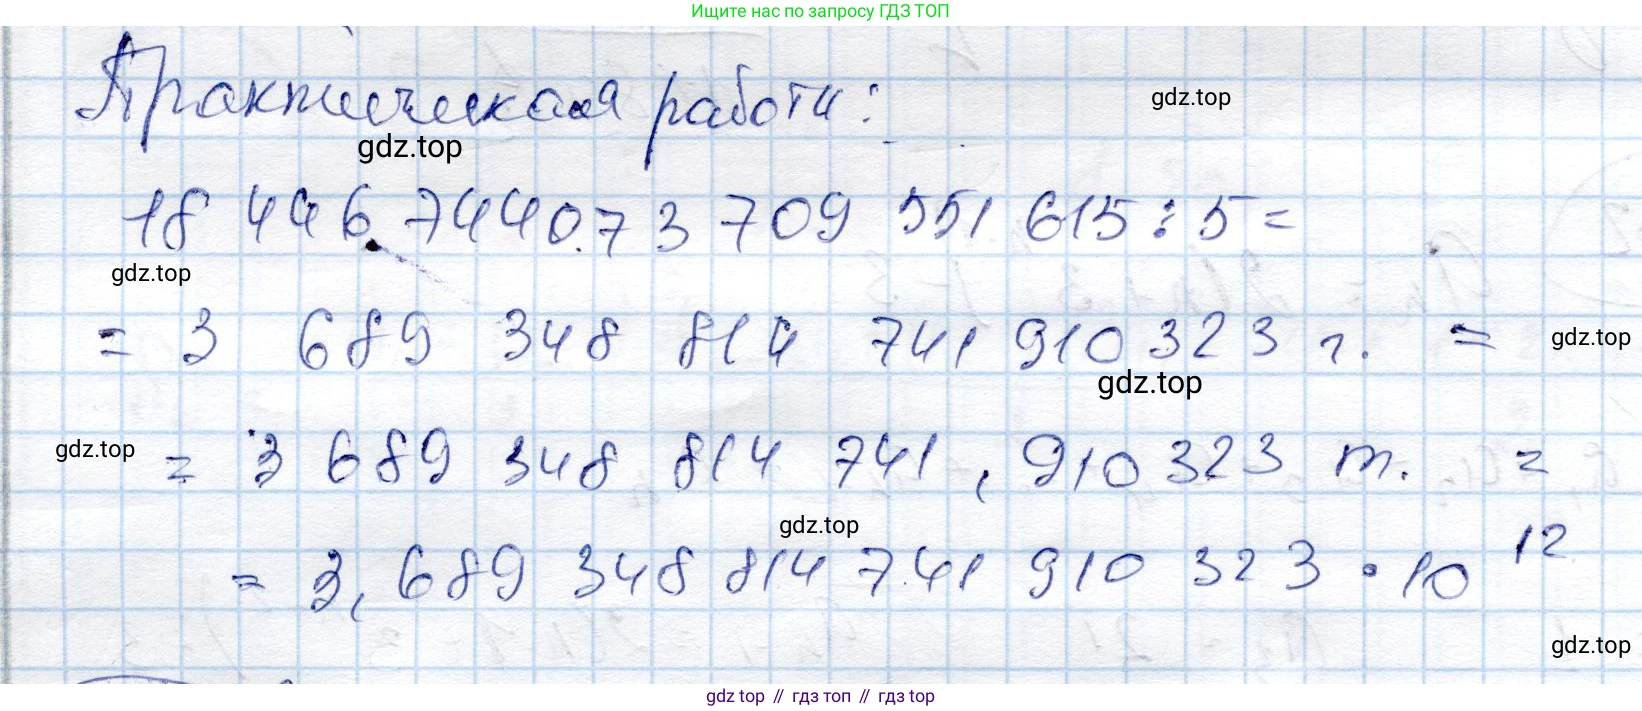 Ищите нас по запросу ГДЗ ТОП
Практическая работа:
gdz.top
gdz.top
18 446 7440 73 709 551 615 : 5 =
gdz.top
= 3 689 348 814 741 910 323 г. =
gdz.top
gdz.top
= 3 689 348 814 741 , 910 323 т. =
gdz.top
gdz.top
= 3, 689 348 814 741 910 323 · 10^12
gdz.top
gdz top // гдз топ // гдз top